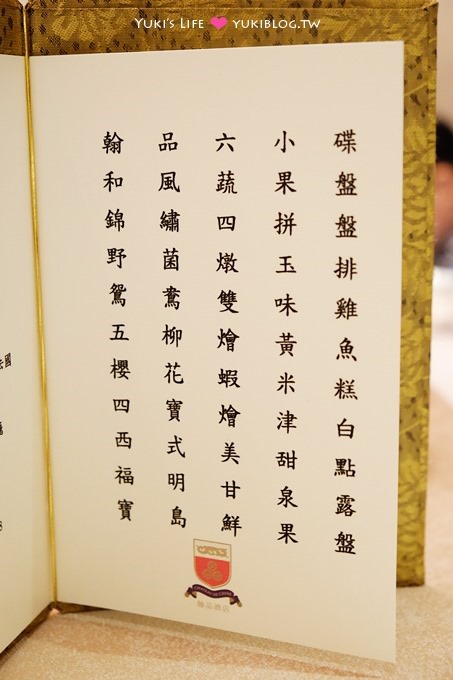 YUKI'S LIFE ♥ YUKIBLOG.TW
翰品六小碟
和風蔬果盤
錦繡四拼盤
野菌燉玉排
鴛鴦雙味雞
五柳燴黃魚
櫻花蝦米糕
四寶燴津白
西式美甜點
福明甘泉露
寶島鮮果盤
翰品酒店
國
8